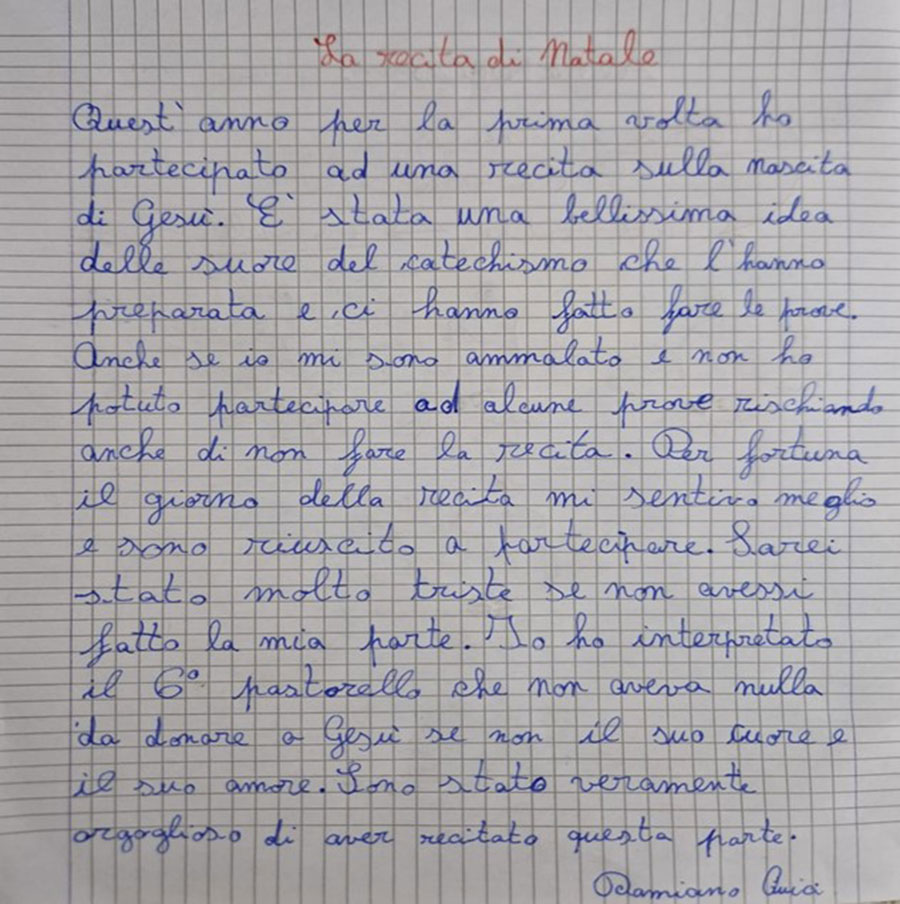 La recita di Natale
Quest'anno per la prima volta ho
partecipato ad una recita sulla nascita
di Gesù. È stata una bellissima idea
delle suore del catechismo che l'hanno
preparata e ci hanno fatto fare le prove.
Anche se io mi sono ammalato e non ho
potuto partecipare ad alcune prove rischiando
anche di non fare la recita. Per fortuna
il giorno della recita mi sentivo meglio
e sono riuscito a partecipare. Sarei
stato molto triste se non avessi
fatto la mia parte. Io ho interpretato
il 6° pastorello che non aveva nulla
da donare a Gesù se non il suo cuore e
il suo amore. Sono stato veramente
orgoglioso di aver recitato questa parte.
Damiano